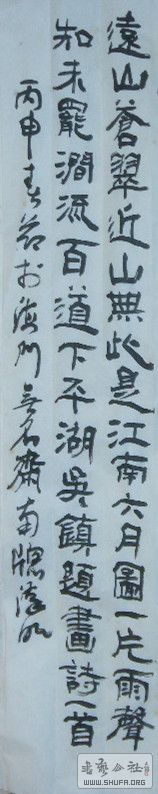 遠山蒼翠近山無此是江南六月圖一片雨聲
知未罷澗流百道下平湖吳鎮題畫詩一首
丙申春節於海門無名齋南牕漢
书艺公社
WWW.SHUFA.ORG